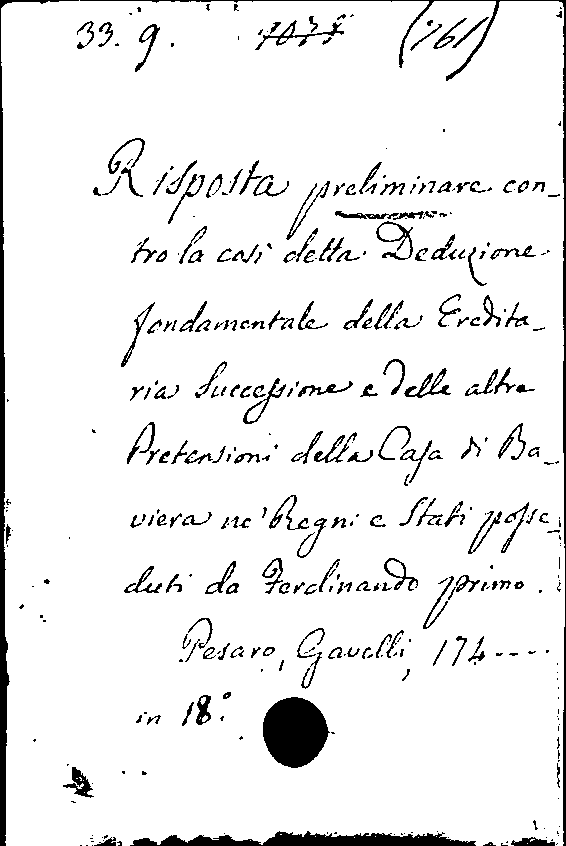 33. 9. (761)
Risposta preliminare con-
tro la così detta Deduzione
fondamentale della Eredita-
ria Successione e delle altre
Pretensioni della Casa di Ba-
viera ne' Regni e Stati posse-
duti da Ferdinando primo.
Pesaro, Gavelli, 174----
in 18.°